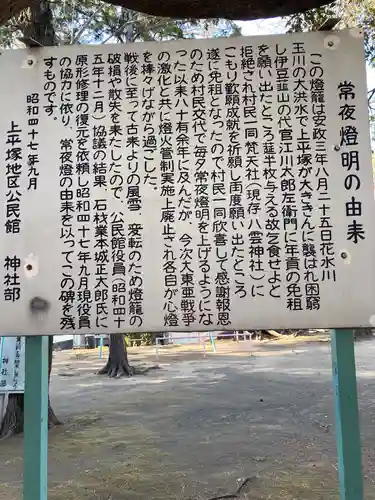 常夜燈明の由来
この燈籠は安政三年八月二十五日花水川
玉川の大洪水で上平塚が大ききんに襲はれ困窮
し伊豆韮山の代官江川太郎左衛門に年貢の免租
を願い出たところ莚半枚与える故乞食せよと
拒絶され村民一同梵天社(現存・八雲神社)に
こもり歓願成就を祈願し再度願い出たところ
遂に免租となったので村民一同欣喜して感謝報恩
のため村民交代で毎夕常夜燈明を上げるようにな
った以来八十有余年に及んだが、今次大東亜戦争
の激化と共に燈火管制実施上廃止され各自が心燈
を捧げながら過ごした。
戦後に至って古来よりの風雪、変転のため燈籠の
破損や散失を来たしたので、公民館役員(昭和四十
五年十二月)協議の結果、石材業本城正太郎氏に
原形修理の復元を依頼し昭和四十七年九月現役員
の協力に依り、常夜燈の由来を以ってこの碑を残
すものです。
昭和四十七年九月
上平塚地区公民館 神社部
神社部